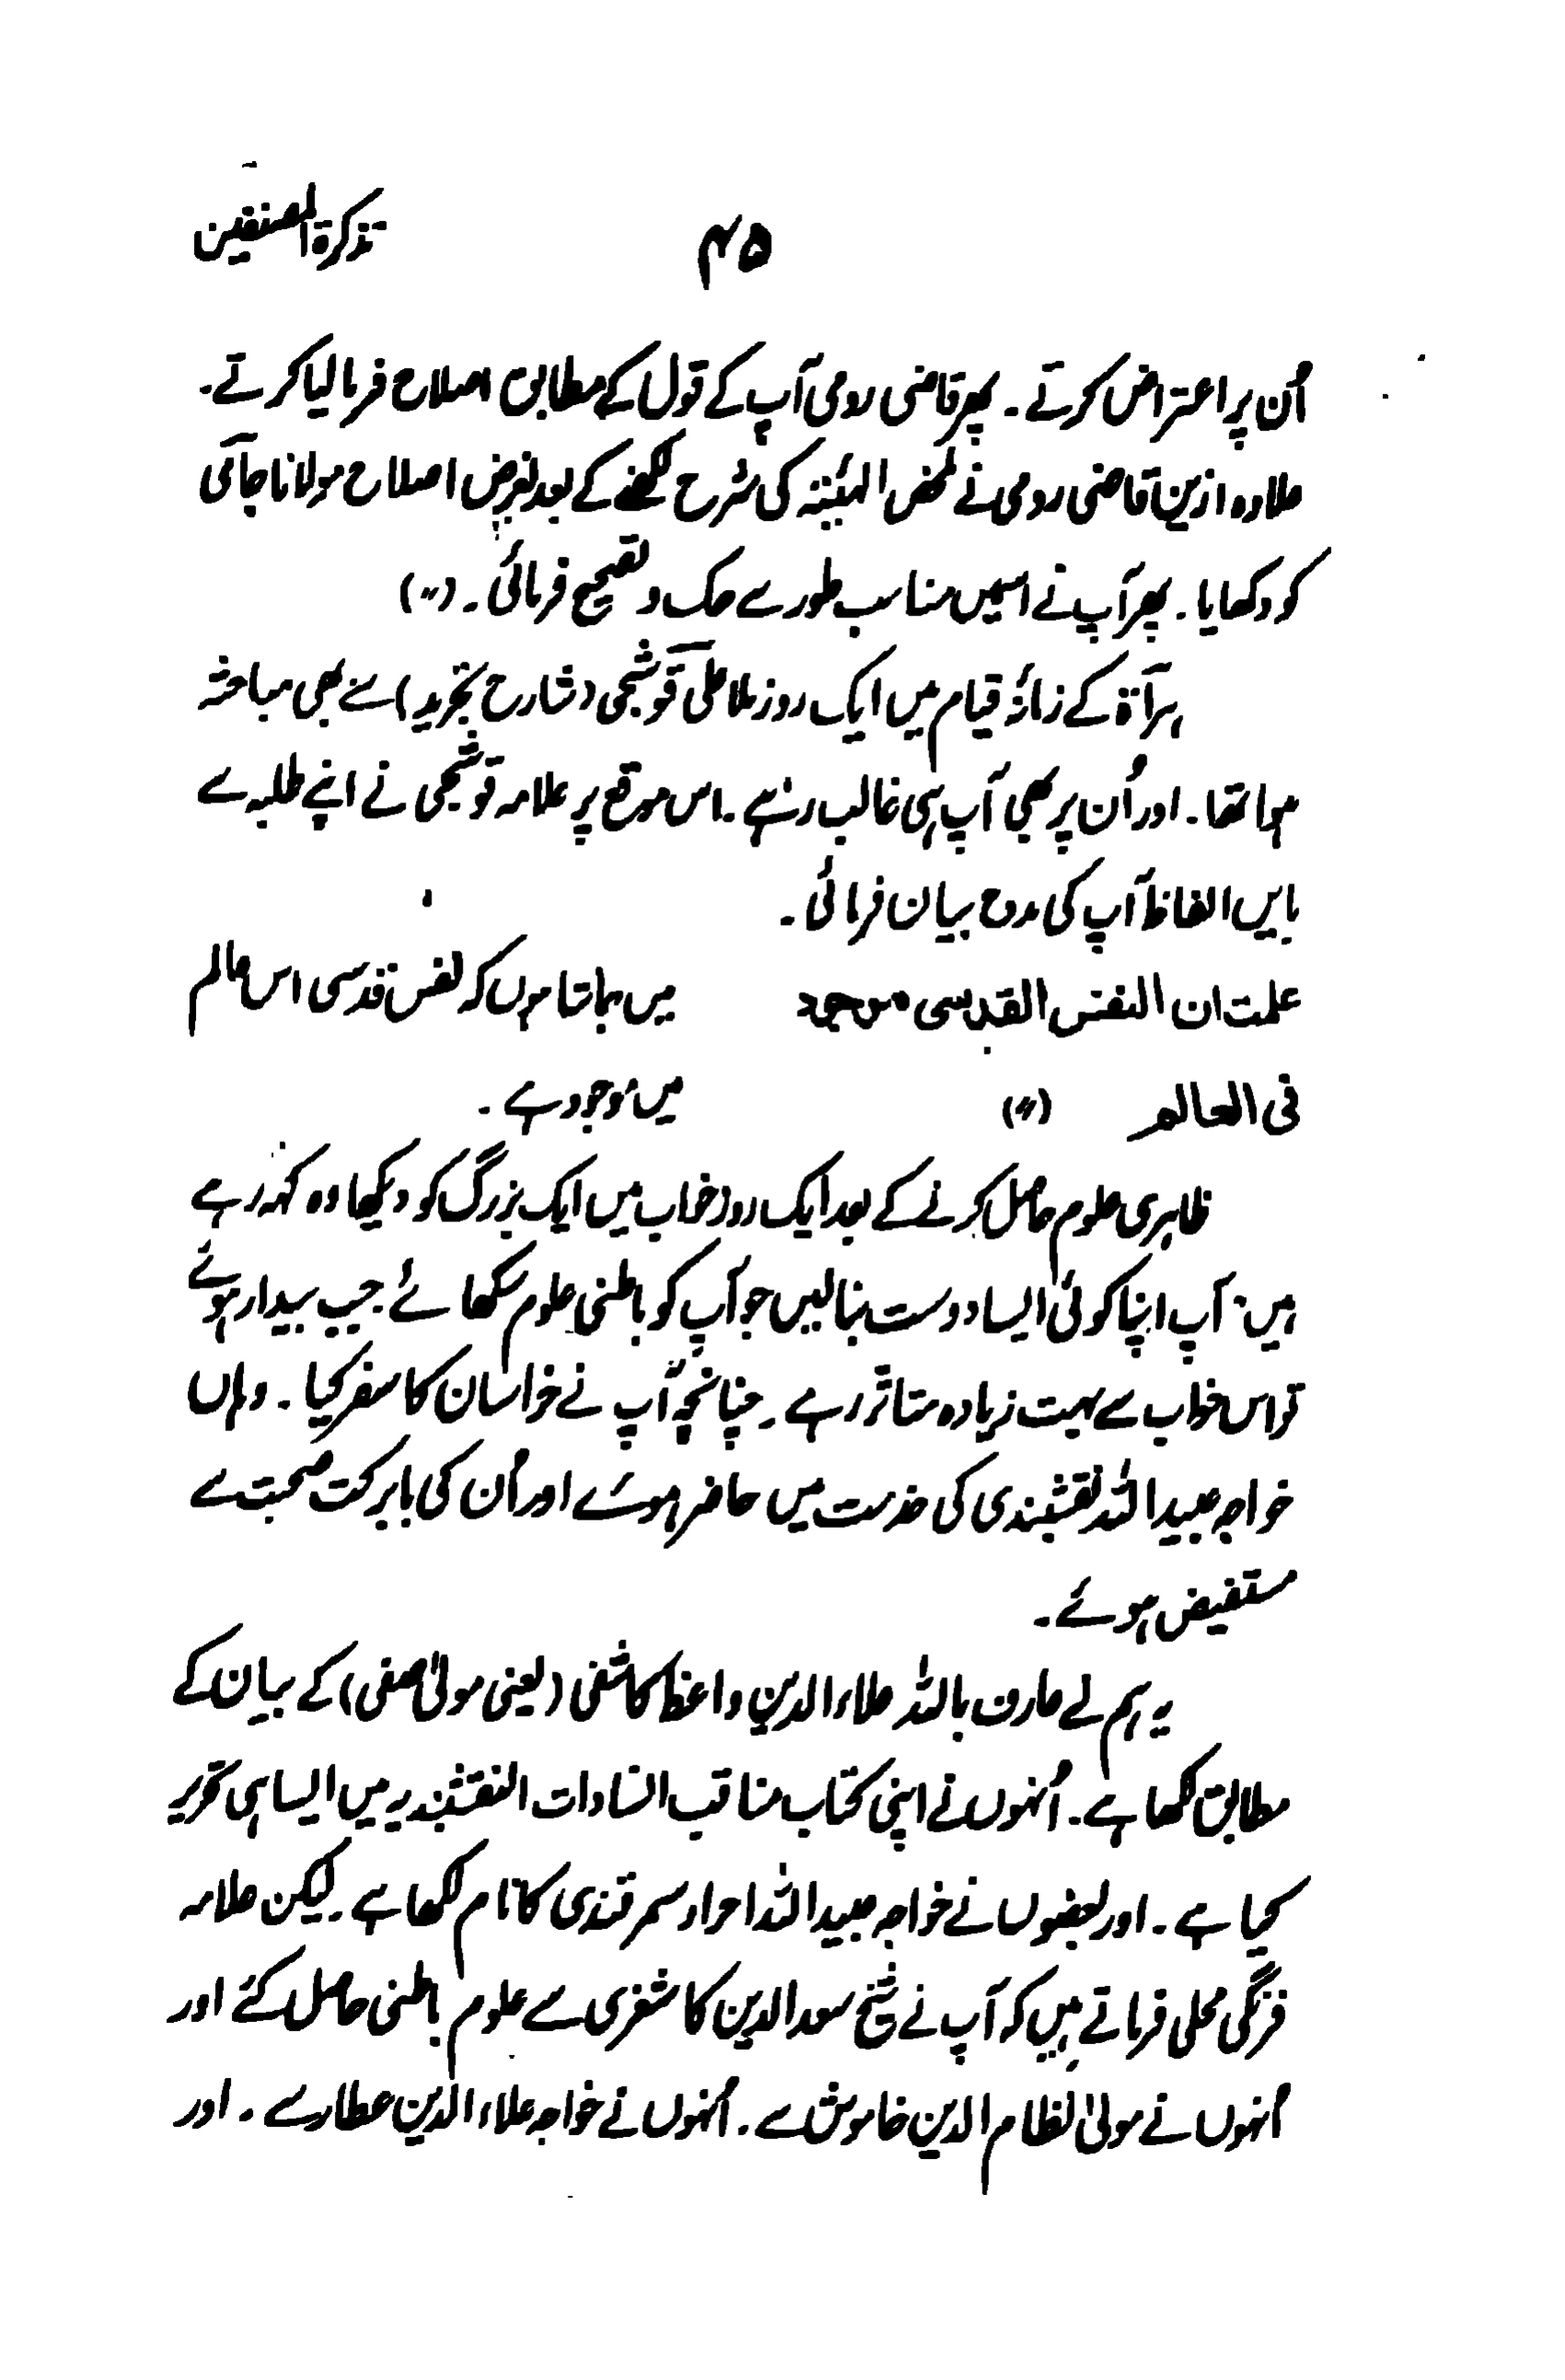 تذکرۃ المصنفین
۴۵
اُن پر اعتراض کرتے ۔ پھر قاضی رومی آپ کے قول کے مطابق اصلاح فرما لیا کرتے۔
علاوہ ازیں قاضی رومی نے ملخص الہیئۃ کی شرح لکھنے کے بعد بغرض اصلاح مولانا جامی
کو دکھایا ۔ پھر آپ نے اسمیں مناسب طور سے حک و تصحیح فرمائی ۔ (〃)
ہراۃ کے زمانۂ قیام میں ایک روز ملا علی قوشجی (شارح تجرید) سے بھی مباحثہ
ہوا تھا ۔ اور اُن پر بھی آپ ہی غالب رہے ۔ اس موقع پر علامہ قوشجی نے اپنے طلبہ سے
بایں الفاظ آپ کی مدح بیان فرمائی ۔
علمت ان النفس القدسی موجود
میں جانتا ہوں کہ نفس قدسی اس عالم
فی العالم (〃)
میں موجود ہے ۔
ظاہری علوم حاصل کرنے کے بعد ایک روز خواب میں ایک بزرگ کو دیکھا وہ کہہ رہے
ہیں: آپ اپنا کوئی ایسا دوست بنا لیں جو آپ کو باطنی علوم سکھائے جب بیدار ہوئے
تو اس خواب سے بہت زیادہ متاثر رہے ۔ چنانچہ آپ نے خراسان کا سفر کیا ۔ وہاں
خواجہ عبید اللہ نقشبندی کی خدمت میں حاضر ہوئے اور اُن کی بابرکت صحبت سے
مستفیض ہوئے ۔
یہ ہم نے عارف باللہ علاء الدین واعظ کاشفی (یعنی مولیٰ صفی) کے بیان کے
مطابق لکھا ہے ۔ اُنہوں نے اپنی کتاب مناقب السادات النقشبندیہ میں ایسا ہی تحریر
کیا ہے ۔ اور بعضوں نے خواجہ عبید اللہ احرار سمرقندی کا نام لکھا ہے ۔ لیکن علامہ
فرنگی محلی فرماتے ہیں کہ آپ نے شیخ سعد الدین کاشغری سے علوم باطنی حاصل کئے اور
اُنہوں نے مولیٰ نظام الدین خاموش سے ۔ اُنہوں نے خواجہ علاء الدین عطار سے ۔ اور